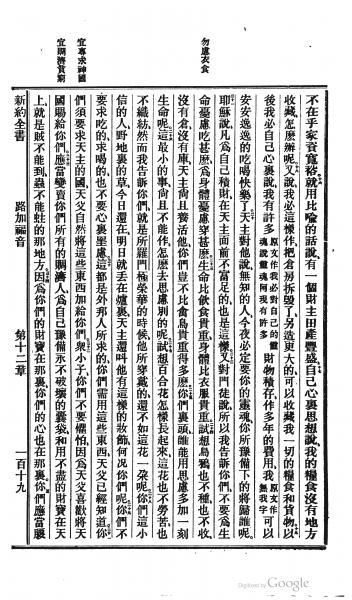 勿慮衣食
宜專求神國
宜賙濟貧窮
不在乎家資寬裕就用比喻的話說有一個財主田產豐盛自己心裏思想說我的糧食沒有地方
收藏怎麽辦呢又說我必這樣作把倉房拆毀了另造更大的可以收藏我一切的糧食和貨物以
後我必自己心裏說我有許多財物積存作多年的費用可以
原文作我必對自己的靈
魂說靈魂阿我有許多
原文作
無我字
安安逸逸的吃喝快樂了天主對他說無知的人今夜必定要你的靈魂你所豫備下的將歸誰呢
耶穌說凡爲自己積財在天主面前不富足的也是這樣又對門徒說所以我告訴你們不要爲生
命憂慮吃甚麽爲身體憂慮穿甚麽生命比飲食貴重身體比衣服貴重試想烏鴉也不種也不收
沒有倉沒有庫天主尙且養活他你們豈不比禽鳥貴重得多麽你們裏頭誰能用思慮多加一刻
生命呢這最小的事尙且不能作怎麽去思慮別的呢試想百合花怎樣長起來這花也不勞苦也
不織紡然而我告訴你們就是所羅門極榮華的時候他所穿戴的還不如這花一朶呢你們這小
信的人野地裏的草今日還在明日就丟在爐裏天主還叫他有這樣的妝飾何况你們呢你們不
要求吃的求喝的也不要心裏墨慮這都是外邦人所求的你們需用這些東西天父已經知道你
們須要求天主的國天父自然將這些東西加給你們衆小子你們不要懼怕因爲天父喜歡將天
國賜給你們應當變賣你們所有的賙濟人爲自己豫備永不破壞的囊袋和用不盡的財寶在天
上就是賊不能到蟲不能蛀的那地方因爲你們的財寶在那裏你們的心也在那裏你們應當腰
新約全書 路加福音 第十二章 一百十九
Digitized by Google